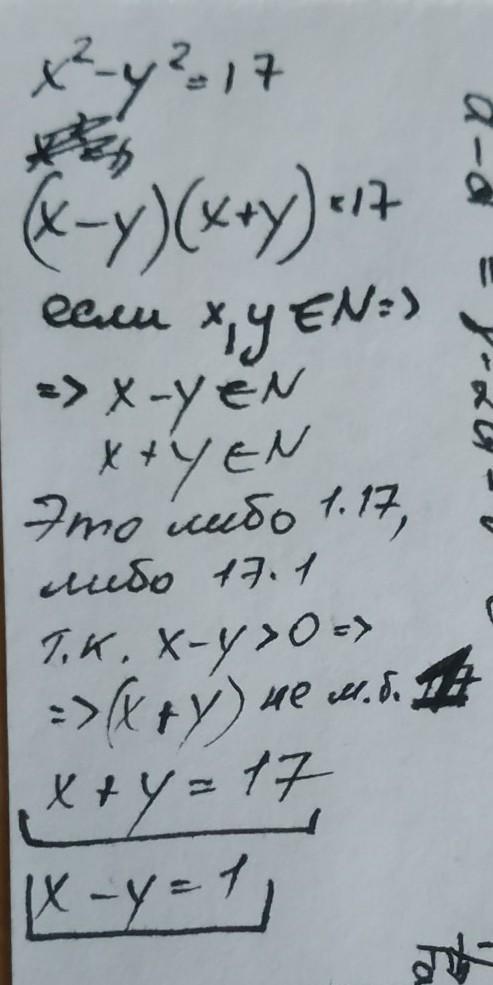 x² - y² = 17
(x - y)(x + y) = 17
если x, y ∈ N =>
=> x - y ∈ N
x + y ∈ N
Это либо 1·17,
либо 17·1
т.к. x - y > 0 =>
=> (x + y) не м.б. 1
x + y = 17
x - y = 1